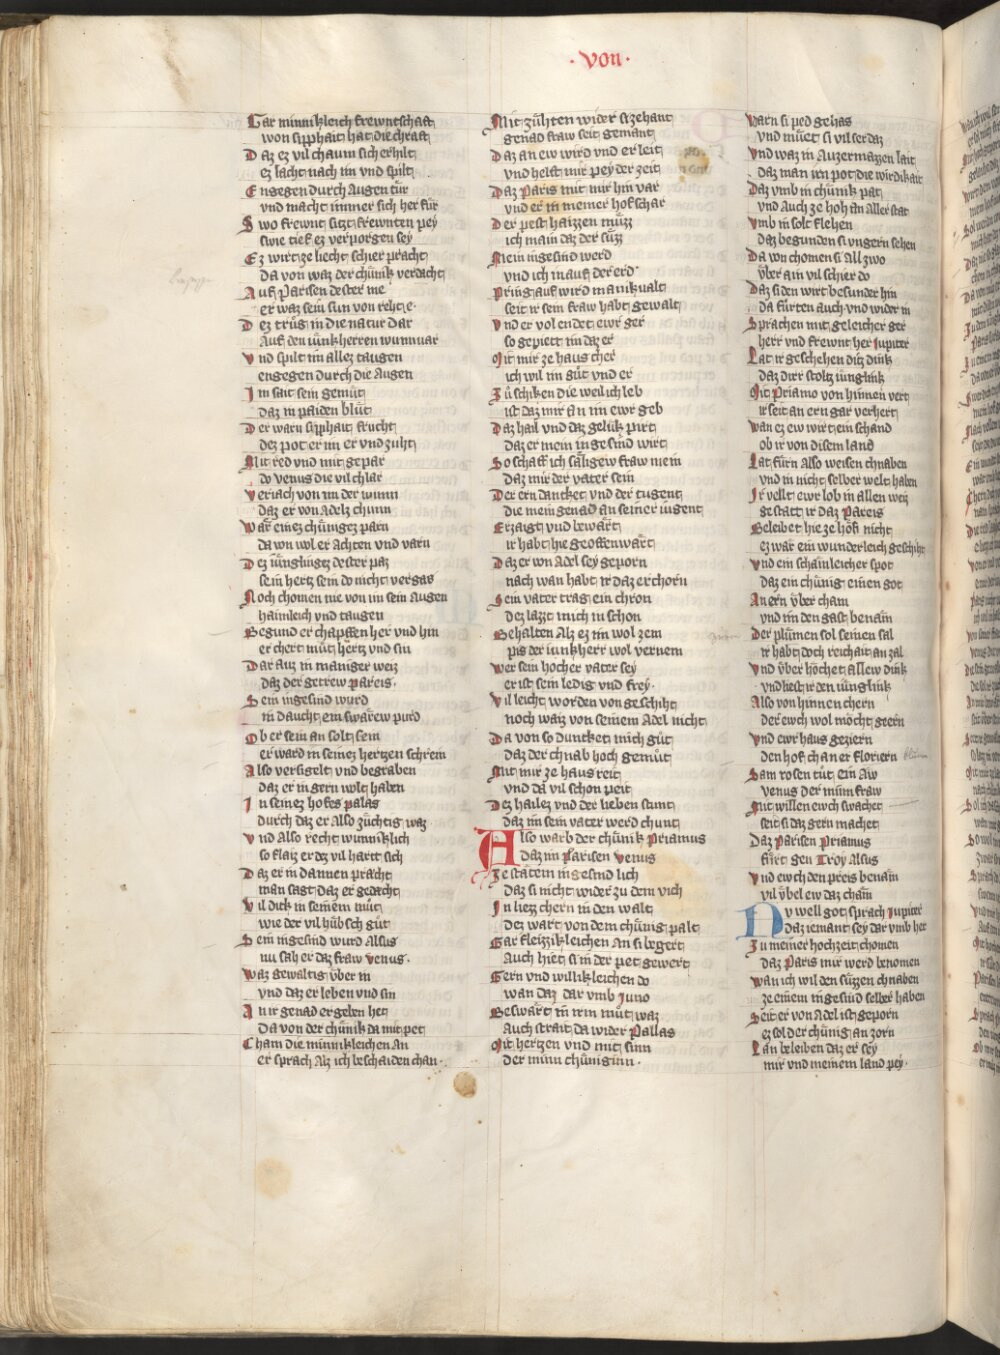 · von ·
Gar minnikleich frewntschaft
won sipphait hat die chraft
Daz ez vil chaum sich erhilt
ez lacht nach im vnd spilt
Engegen durch Augen tür
vnd macht immer sich her für
Swo frewnt sitzt frewnten pey
swie tief ez verporgen sey
Ez wirt ze liecht schier pracht
da von waz der chünik verdacht
Auf Parisen dester me
er waz sein sun von rehter e
Dez trüg in die natur dar
Auf den iunkherren wunnuar
Vnd spilt im allez taugen
engegen durch die Augen
Im sait sein gemüt
daz in paiden blüt
Der warn sipphait frucht
dez pot er im er vnd zuht
Mit red vnd mit gepar
do venus die vil chlar
Veriach von im der winn
daz er von Adelz chunn
Wär einez chünigez parn
da won wol er Achten vnd varn
Dez iünglingz dester paz
sein hertz sein do nicht vergas
Noch chomen nie von im sein Augen
haimleich vnd taugen
Begund er chapffen her vnd hin
er chert müt hertz vnd sin
Dar auz in maniger weiz
daz der getrew pareis ·
Sein ingesind wurd
in daucht ein swärew purd
Ob er sein an solt sein
er ward in seinez hertzen schrein
Also versigelt vnd begraben
daz er in gern wolt haben
In seinez hofes palas
durch daz er Also züchtig waz
Vnd Also recht wunniklich
so flaiz er dez vil hart sich
Daz er in dannen prächt
man sagt daz er gedacht
Vil dick in seinem müt
wie der vil hübsch güt
Sein ingesind wurd Alsus
nu sah er daz fraw venus ·
Waz gewaltig vber in
vnd daz er leben vnd sin
An ir genad ergeben het
Da von der chünik da mit pet
Cham die minnikleichen An
er sprach Alz ich beschaiden chan ·
Mit zühten wider si zehant
genad fraw seit gemant
Daz an ew wird vnd er leit
vnd helft mir pey der zeit
Daz Paris mit mir hin var
vnd er in meiner hofschar
Der pest haizzen müzz
ich main daz der süzz
Mein ingesind werd
vnd ich in auf der erd
Pring auf wird manikualt
seit ir sein fraw habt gewalt
Vnd er vol endet ewr ger
so gepiett im daz er
Mit mir ze haus cher
ich wil im güt vnd er
Zü schiken die weil ich leb
ist daz mir An im ewr geb
Daz hail vnd daz gelük pirt
daz er mein ingesind wirt
So schaff ich säligew fraw mein
daz mir der vater sein
Der ern dancket vnd der tugent
die mein genad an seiner iugent
Erzaigt vnd bewärt
ir habt hie geoffenwärt
Daz er von Adel sey geporn
nach wan habt ir daz erchorn
Sein vater trag ein chron
dez lazzt mich in schon
Behalten Alz ez im wol zem
pis der iunkherr wol vernem
Wer sein hocher vater sey
er ist sein ledig vnd frey ·
Vil leicht worden von geschiht
noch waiz von seinem Adel nicht
Da von so duncket mich güt
daz der chnab hoch gemüt
Mit mir ze haus reit
vnd da vil schon peit
Dez hailez vnd der lieben stunt
daz im sein vater werd chunt
Also warb der chünik Priamus
daz im Parisen venus
Ze stätem ingesind lich
daz si nicht wider zu dem vich
In liez chern in den walt
dez wart von dem chünig palt
Gar fleizzikleichen An si begert
Auch hiet si in der pet gewert
Gern vnd willikleichen do
wan daz dar vmb Juno
Beswärt in irm müt waz
Auch strait da wider Pallas
Mit hertzen vnd mit sinn
der minn chüniginn ·
Warn si ped gehas
vnd müet si vil ser daz
Vnd waz in Auzermazzen lait
daz man im pot die wirdikait
Daz vmb in chünik pat
vnd Auch ze hoh an Aller stat
Vmb in solt flehen
daz begunden si vngern sehen
Da von chomen si All zwo
vber ain vil schier do
Daz si den wirt besunder hin
da fürten auch vnd wider in
Sprachen mit geleicher ger
herr vnd frewnt her Jupiter
Lat ir geschehen ditz dink
daz dirr stoltz iunglink
Mit Priamo von hinnen vert
ir seit an ern gar verhert
Wan ez ew wirt ein schand
ob ir von disem land
Lat fürn Also weisen chnaben
vnd in nicht selber welt haben
Ir vellt ewr lob in allen weiz
gestatt ir daz Pareis
Beleibet hie ze hof nicht
ez wär ein wunderleich geschiht
Vnd ein schämleicher spot
daz ein chünig einen got
An ern vber cham
vnd im den gast benäm
Der plümen sol seinen sal
ir habt doch reichait an zal
Vnd vber höchet allew dink
vnd hest ir den iunglink
Also von hinnen chern
der ewch wol möcht geern
Vnd ewr haus geziern
den hof chan er floriern
Sam rosen tüt ein Aw
venus der minn fraw
Mit willen ewch swachet
seit si daz gern machet
Daz Parisen Priamus
fürt gen Troy Alsus
Vnd ewch den preis benäm
vil vbel ew daz chäm
Nu well got sprach Jupiter
Daz iemant sey dar vmb her
Zu meiner hochzeit chomen
daz Paris mir werd benomen
Wan ich wil den süzzen chnaben
ze einem ingesind selber haben
Seit er von Adel ist geporn
ez sol der chünig an zorn
Lan beleiben daz er sey
mir vnd meinem land pey ·